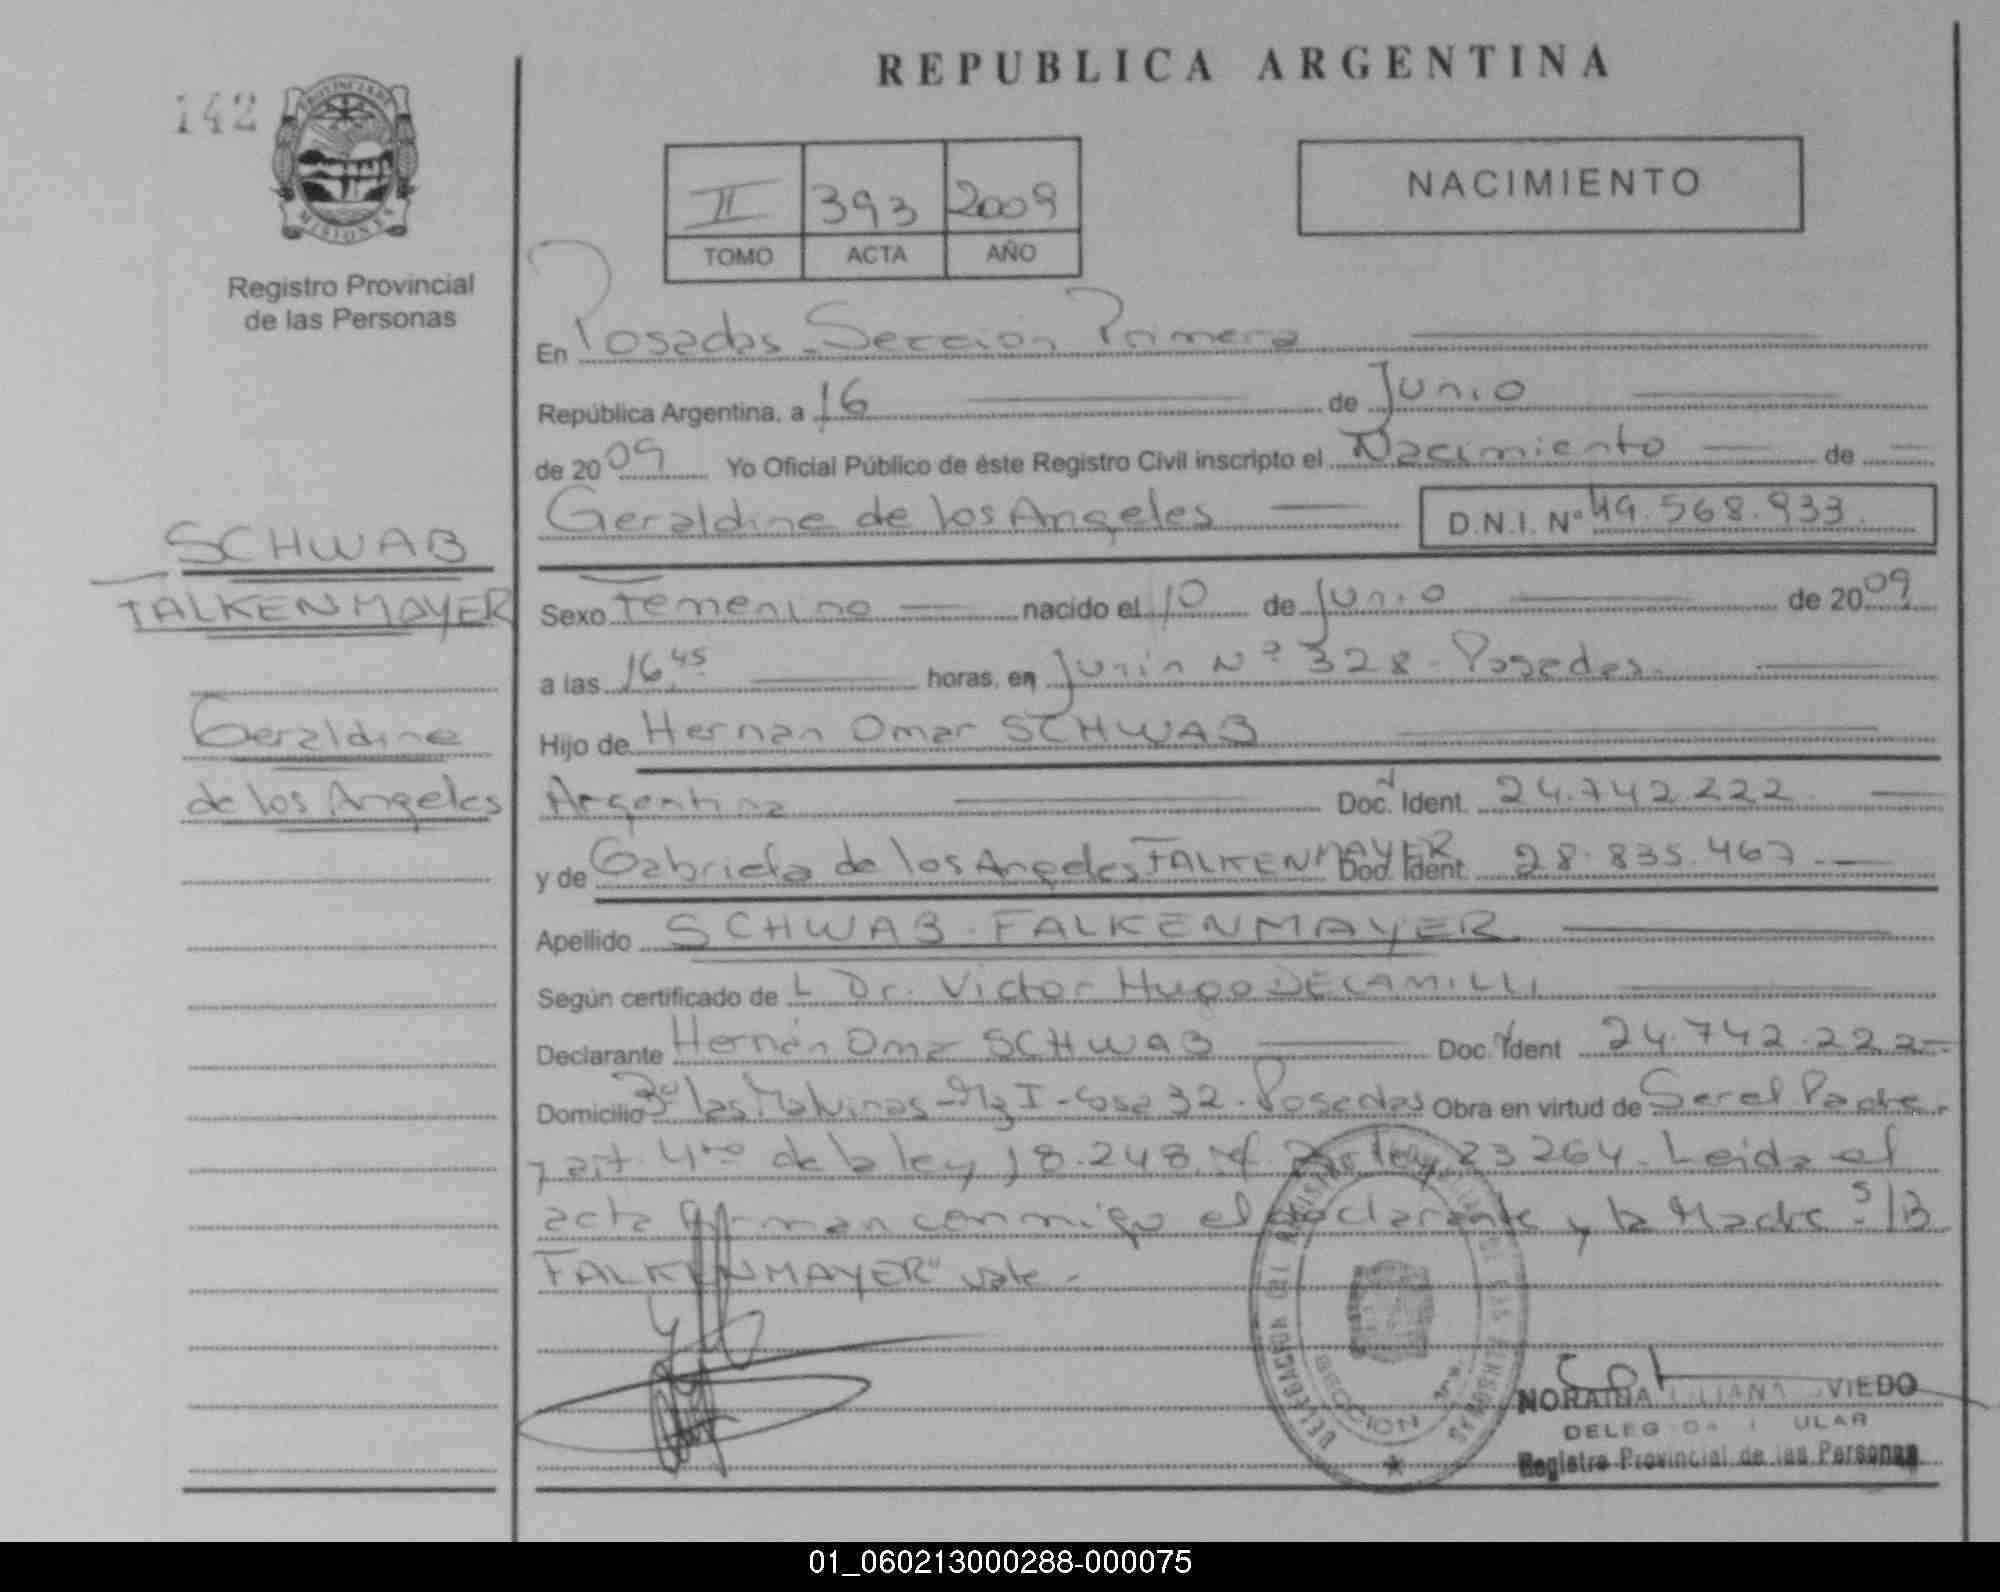 REPUBLICA ARGENTINA
142
PROVINCIA DE
MISIONES
Registro Provincial
de las Personas
II 393 2009
TOMO ACTA AÑO
NACIMIENTO
En Posadas - Sección Primera
República Argentina, a 16 de Junio
de 2009 Yo Oficial Público de éste Registro Civil inscripto el Nacimiento de
Geraldine de los Angeles D.N.I. Nº 49.568.933.
SCHWAB
FALKENMAYER
Geraldine
de los Angeles
Sexo Femenino nacido el 10 de Junio de 2009
a las 16.45 horas, en Junin Nº 328 - Posadas.
Hijo de Hernan Omar SCHWAB
Argentina Doc. Ident. 24.742.222
y de Gabriela de los Angeles FALKENMAYER Doc. Ident. 28.835.467.
Apellido SCHWAB - FALKENMAYER
Según certificado de L Dr. Victor Hugo DECAMILLI
Declarante Hernán Omar SCHWAB Doc. Ident 24.742.222
Domicilio Bº las Malvinas - Mz I - Casa 32 - Posadas Obra en virtud de Ser el Padre.
y art. 4to de la ley 18.248 ley 23264. Leida el
acta firman conmigo el declarante y la Madre. S/B
FALKENMAYER" vale.
DELEGACION DEL REGISTRO DE LAS PERSONAS
SECCION 1ra.
LILIANA OVIEDO
DELEGADA TITULAR
Registro Provincial de las Personas
01_060213000288-000075